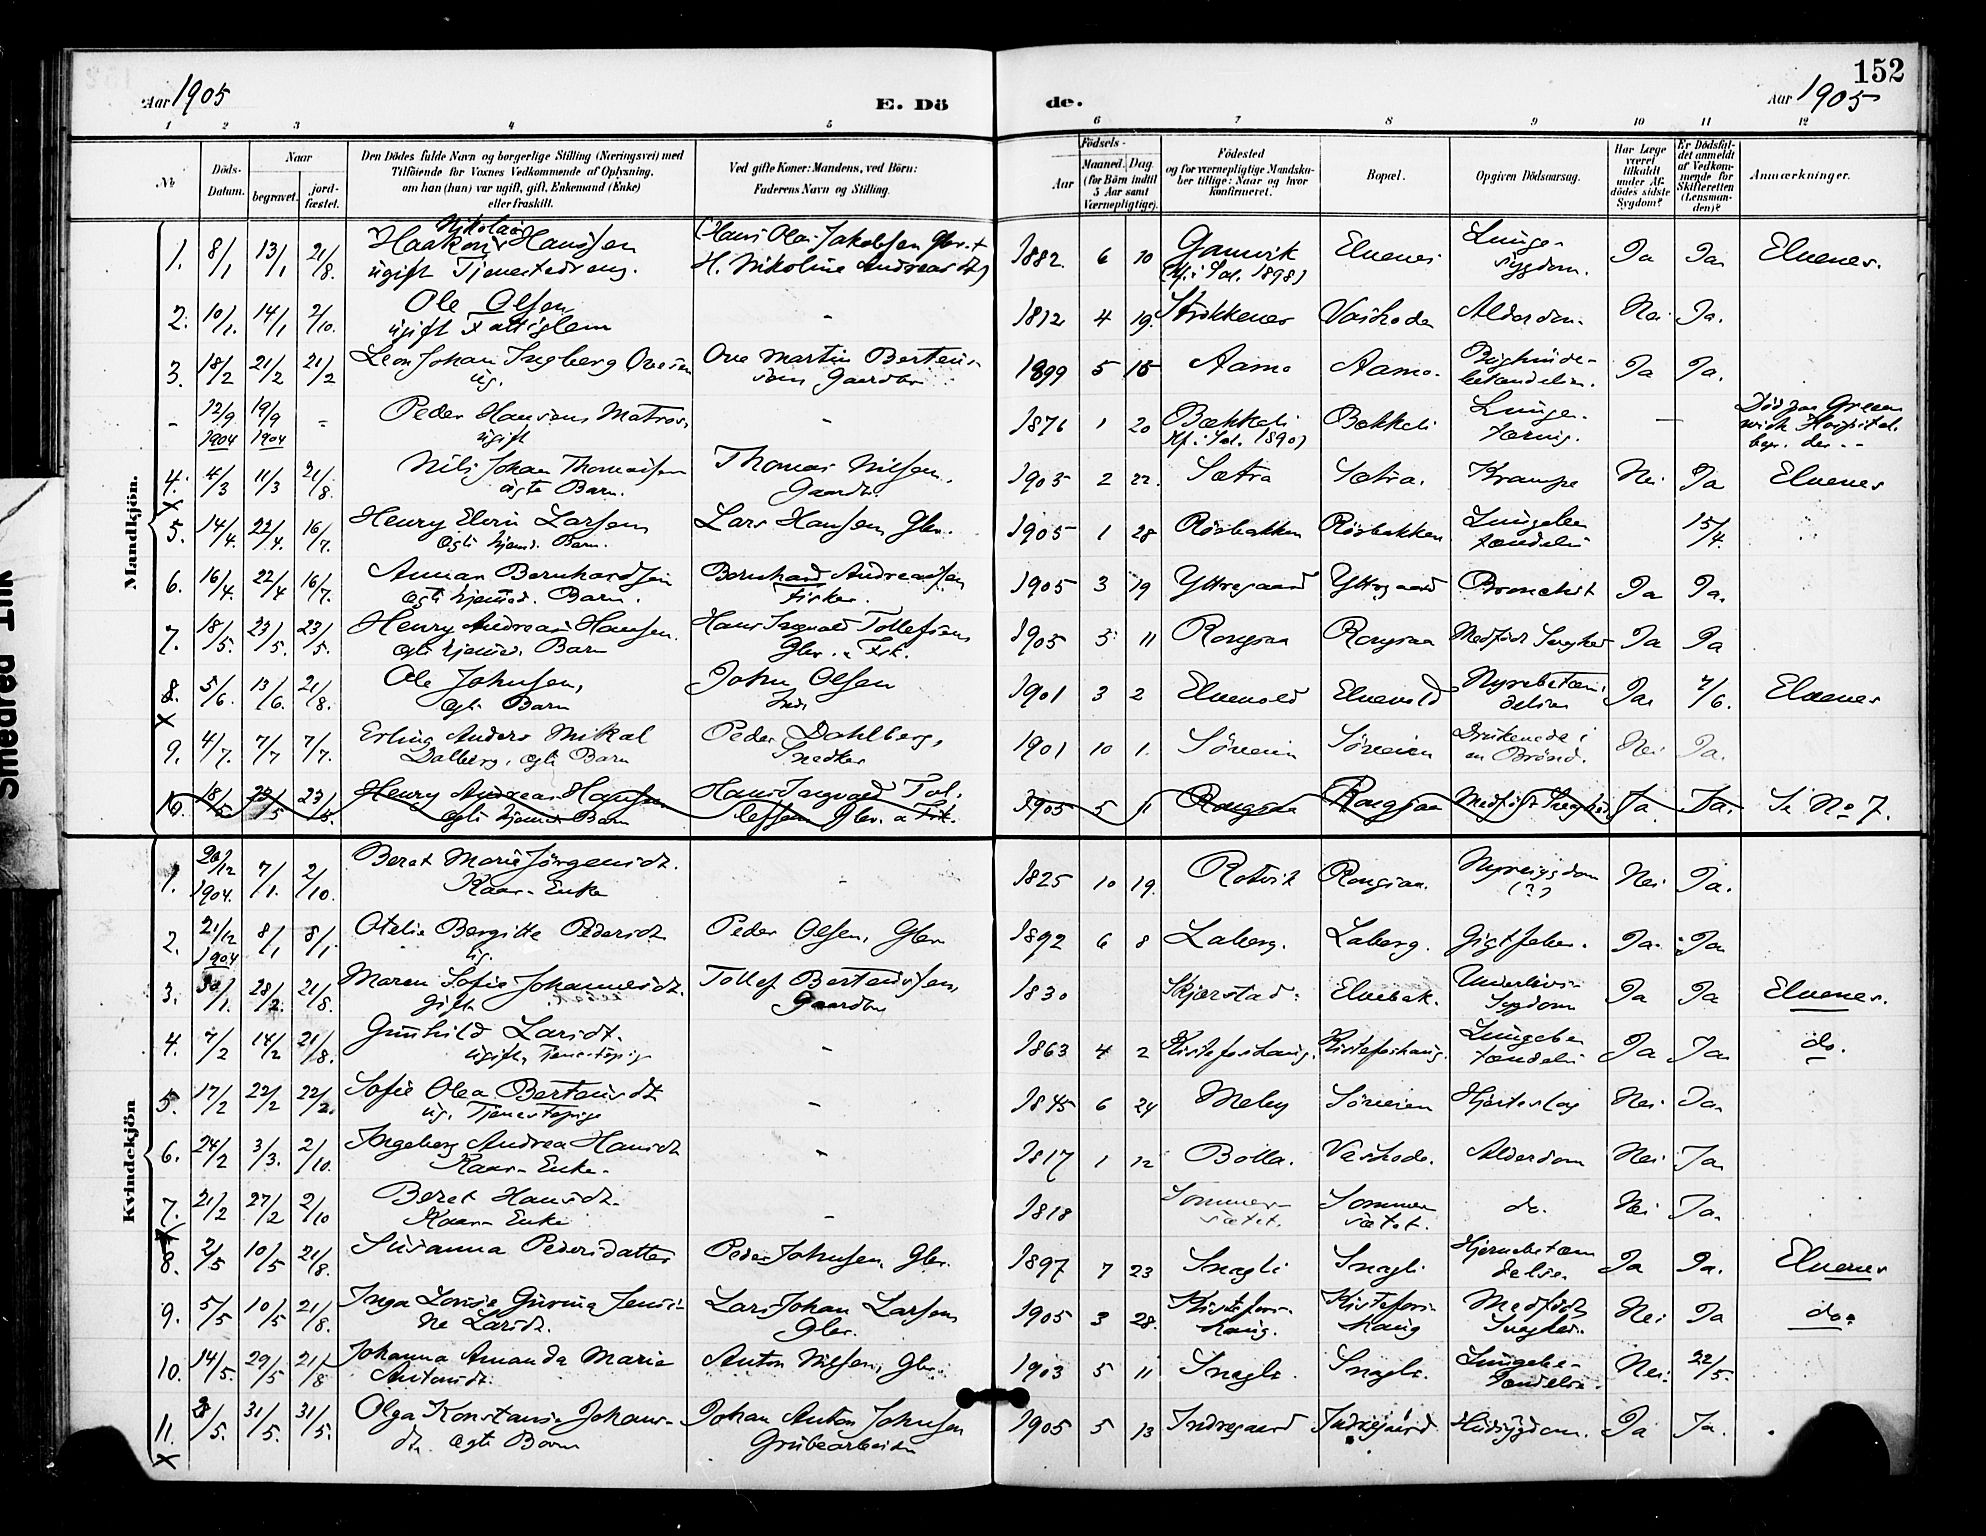 152
Aar 1905
E. Dö
de.
Aar 1905
1 2 3 4 5 6 7 8 9 10 11 12
No.
Döds-Datum.
Naar
begravet.
jord-fæstet.
Den Dödes fulde Navn og borgerlige Stilling (Næringsvei) med
Tilföiende for Voxnes Vedkommende af Oplysning,
om han (hun) var ugift, gift, Enkemand (Enke)
eller fraskilt.
Ved gifte Koner: Mandens, ved Börn:
Faderens Navn og Stilling.
Födsels-
Aar
Maaned. Dag.
(for Börn indtil
5 Aar samt
Værnepligtige).
Födested
og for værnepligtige Mandska-
ber tillige: Naar og hvor
konfirmeret.
Bopæl.
Opgiven Dödsaarsag.
Har Læge
været
tilkaldt
under Af-
dödes sidste
Sygdom?
Er Dödsfal-
det anmeldt
af Vedkom-
mende for
Skifteretten
(Lensman-
den)?
Anmærkninger.
Mandkjön.
1. 8/1 13/1 21/8. Haakon Nikolai Hansen ugift Tjenestedreng. (Hans Olai Jakobsen Gbr. + H. Nikoline Andreasdt) 1882. 6 10 Gamvik (Kf. i Sal. 1898) Elvenes Lunge-sygdom. Ja Ja Elvenes.
2. 10/1. 14/1 2/10. Ole Olsen ugift Fattiglem - 1812 4 19. Strokkenes Vashode Alderdom. Nei Ja.
3. 18/2 21/2 21/2 Leon Johan Ingberg Ovesen ug. Ove Martin Bertens-sen Gaardbr 1899 5 15 Aamo Aamo. Bughinde-betændelse. Ja Ja.
- 12/9 1904 19/9 1904 - Peder Hansens Matros ugift - 1876 1 20 Bækkeli Kf. i Sal. 1890) Bækkeli Lunge-tæring. - Död paa Green wich Hospital. begr. der.
4. 4/3 11/3 21/8. Nils Johan Thomassen ægte Barn. Thomas Nilsen, Gaardbr. 1903 2 22. Sætra Sætra. Krampe Nei Ja Elvenes
X
5. 14/4. 22/4. 16/7. Henry Elvin Larsen ægte hjemd. Barn. Lars Hansen Gbr. 1905 1 28 Rösbakken Rösbakken Lungebetændelse 15/4.
6. 16/4. 22/4 16/7. Annar Bernhardsen ægte hjemd. Barn. Bernhard Andreassen Fisker. 1905 3 19 Yttregaard Yttregaard Bronchit Ja Ja.
7. 18/5. 23/5. 23/5. Henry Andreas Hansen. ægte hjemd. Barn Hans Ingvald Tollefsens Gbr. & Fisk. 1905 3 11 Rongsaa Rongsaa Medfödt Svaghed Ja Ja
8. 5/6. 13/6. 21/8. Ole Johnsen, ægte Barn John Olsen Inds 1901 3 2 Elvevold Elvevold Nyrebetændelse Ja 7/6. Elvenes
X
9. 4/7. 7/7 7/7. Erling Anders Mikal Dalberg, ægte Barn Peder Dahlberg, Snedker 1901 10 1. Sörveien Sörveien Druknede i en Brönd. Nei Ja.
10. 18/5 23/5 23/5. Henry Andreas Hansen ægte hjemd. Barn Hans Ingvald Tol-lefsen Gbr. & Fisk. 1905 5 11 Rongsaa Rongsaa Medfödt Svaghed Ja. Ja. Se No 7.
Kvindekjön
1. 20/12 1904. 7/1. 2/10. Beret Marie Jörgensdt. Kaar-Enke - 1825 10 19. Rotvik Rongsaa. Nyresygdom (?) Nei Ja.
2. 21/12 1904 8/1 8/1 Otelie Bergitte Pedersdt ug. Peder Olsen, Gbr 1892 6 8 Laberg. Laberg. Gigtfeber. Ja. Ja
3. 30/1. 28/2. 21/8. Maren Sofie Johannesdt. Gift Tollef Bertenssen, Gaardbr 1830 Skjerstad. Elvebak. Underlivs-Sygdom Ja Ja Elvenes.
4. 7/2 14/2 21/8. Gunhild Larsdt. ugift, Tjenestepige - 1863 4 2 Kistefoshaug. Kistefoshaug. Lungebetændelse Ja Ja do.
5. 17/2 22/2 22/2. Sofie Olea Bertensdt ug. Tjenestepige - 1845 6 24 Meby Sörveien Hjerteslag Nei Ja
6. 24/2 3/3. 2/10. Ingeborg Andrea Hansdt Kaar-Enke. - 1817 1 12 Bolla. Vashode. Alderdom Nei Ja
7. 21/2 27/2 2/10 Beret Hansdt. Kaar-Enke - 1818 Sommersætet. Sommersætet. do. Nei Ja.
X
8. 2/5 10/5 21/8. Susanna Pedersdatter Peder Johnsen, Gbr. 1897 7 23 Snagli Snagli Hjernebetændelse. Ja Ja. Elvenes
9. 5/5 10/5 21/8. Inga Lovise Gurina Jensine Larsdt. Lars Johan Larsen Gbr. 1905 3 28. Kistefoss-haug. Kistefoss-haug Medfödt Svaghed. Nei Ja do.
10. 14/5. 29/5 21/8 Johanna Amanda Marie Antonsdt. Anton Nilsen, Gbr. 1903 5 11 Snagli. Snagli. Lungebetændelse. Nei. 22/5.
11. /5. 31/5. 31/5. Olga Konstanse Johans-dt. ægte Barn Johan Anton Johnsen Grubearbeider 1905 5 13 Indregaard Indregaard Hudsygdom. Ja Ja.
X